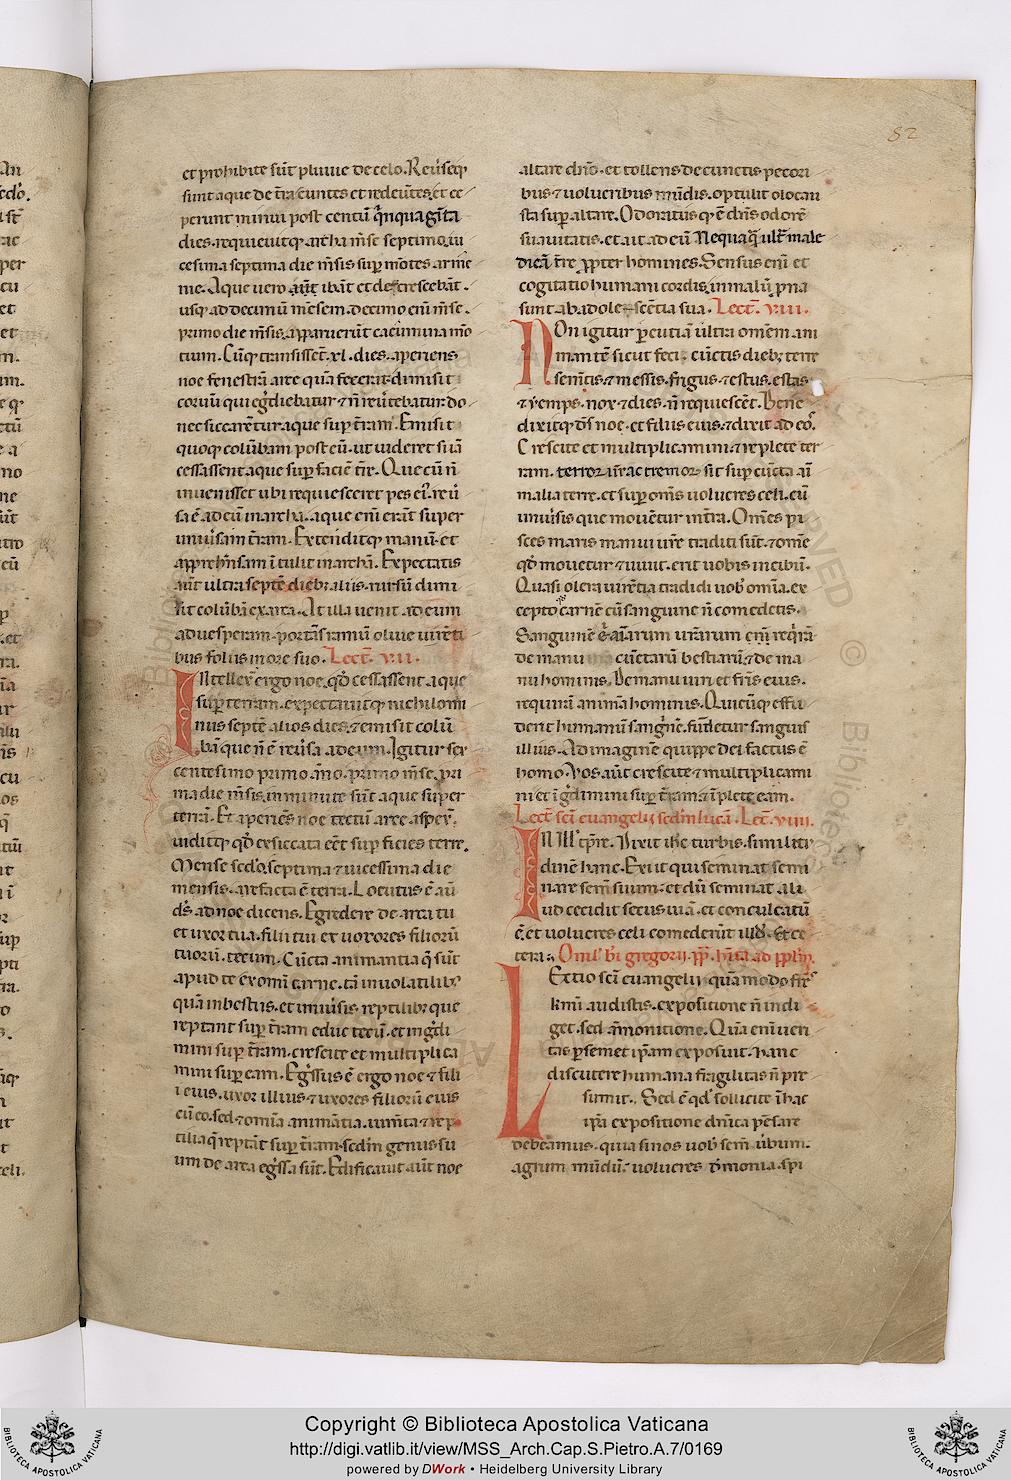 82
et prohibite sūt pluuie de celo. Reūseq;
sunt aque de t̄ra euntes et redeūtes. et ce
perunt minui post centū q̄nquagīta
dies. requieuitq; archa m̄se septimo. ui
cesima septima die m̄sis sup̄ mōtes arme
nie. Aque uero aūt ibāt et decrescebāt.
usq; ad decimū mēsem. decimo enī m̄se.
primo die m̄sis. apparuerūt cacumina mō
tium. Cūq; transissēt .xl. dies. aperiens
noe fenestrā arce quā fecerat. dimisit
coruū qui egdiebatur & n̄ reūtebatur. do
nec siccarētur aque sup̄ t̄ram. Emisit
quoq; colūbam post eū. ut uideret si iā
cessassent aque sup̄ faciē t̄re. Que cū n̄
inuenisset ubi requiesceret pes ei'. reū
sa ē ad eū in archa. aque enī erāt super
uniūsam t̄ram. Extenditq; manū. et
apprehensam ītulit in archā. Expectatis
aūt ultra septē dieb; aliis. rursū dimi
sit colūbā ex arca. At illa uenit ad eum
ad uesperam. portās ramū oliue uirēti
bus foliis in ore suo. Lect̄. VII.
INtellex̄ ergo noe. qd̄ cessassent aque
sup̄ terram. expectauitq; nichilomi
nus septē alios dies. & emisit colū
bā que n̄ ē reūsa ad eum. Igitur sex
centesimo primo āno. primo m̄se. pri
ma die m̄sis. inminute sūt aque super
terrā. Et aperiēs noe tectū arce. aspex̄.
uiditq; qd̄ exsiccata eēt sup̄ficies terre.
Mense scd̄o. septima & uicessima die
mensis. arefacta ē terra. Locutus ē aū
d̄s ad noe dicens. Egredere de arca tu
et uxor tua. filii tui et uxores filiorū
tuorū. tecum. Cūcta animantia q̄ sūt
apud te ex omī carne. tā in uolatilib;
quā in bestiis. et in uniūsis reptilib; que
reptant sup̄ t̄ram educ tecū. et ingdi
mini sup̄ t̄ram. crescite et multiplica
mini sup̄ eam. Egssus ē ergo noe & fili
i eius. uxor illius & uxores filiorū eius
cū eo. sed & omīa animātia. iumīta & rep
tilia q̄ reptāt sup̄ t̄ram. sedm̄ genus su
um de arca egssa sūt. Edificauit aūt noe
altare dn̄o. et tollens de cunctis pecori
bus & uolucribus mūdis. optulit olocau
sta sup̄ altare. Odoratus q; ē dn̄s odorē
suauitatis. et ait ad eū Nequaq̄ ult̄ male
dicā t̄re ppter homines. Sensus enī et
cogitatio humani cordis. in malū prna
sunt ab adolescētia sua. Lect̄. VIII.
NOn igitur percutiā ultra omēm ani
mantē sicut feci. cūctis dieb; terre
semītis & messis. frigus & estus. estas
& yemps. nox & dies. n̄ requiescēt. Bene
dixitq; d̄s noe. et filiis eius. & dixit ad eos.
Crescite et multiplicamini. & replete ter
ram. terror ur̄ ac tremor sit sup̄ cūcta ai
malia terre. et sup̄ om̄s uolucres celi. cū
uniūsis que mouētur in t̄ra. Omēs pi
sces maris manui ur̄e traditi sūt. & omē
qd̄ mouetur & uiuit. erit uobis in cibū.
Quasi olera uirētia tradidi uob' omīa. ex
cepto carnē cū sanguine n̄ comedetis.
Sanguinē ē aīarum ur̄arum enī reqrā
de manu cūctarū bestiarū. & de ma
nu hominis. De manu uiri et fr̄is eius.
requirā animā hominis. Quicūq; effu
derit humanū sangnē. fūdetur sanguis
illius. Ad imaginē quippe dei factus ē
homo. Vos aūt crescite & multiplicami
ni et īgdimini sup̄ t̄ram. & īplete eām.
Lect̄ scī euangelij sedm̄ lucā. Lec̄t. VIIII.
IN ill' tp̄re. Dixit ihc̄ turbis. similitu
dinē hanc. Exiit qui seminat semi
nare semē suum. et dū seminat. ali
ud cecidit secus uiā. et conculcatū
ē. et uolucres celi comederūt illud. Et ce
tera. Omel' bī gregorij. pp̄. hita ad pplm̄.
LEctio scī euangelij quā modo fr̄s
kmi audistis. expositione n̄ indi
get. sed āmonitione. Quā enī ueri
tas p semet ip̄am exposuit. hanc
discutere humana fragilitas n̄ pre
sumit. Sed ē qd̄ sollicite ī hac
ip̄a expositione dn̄ica pēsare
debeamus. quia si nos uob' semē ūbum.
agrum mūdū. uolucres dēmonia. spi
Copyright © Biblioteca Apostolica Vaticana
http://digi.vatlib.it/view/MSS_Arch.Cap.S.Pietro.A.7/0169
powered by DWork • Heidelberg University Library